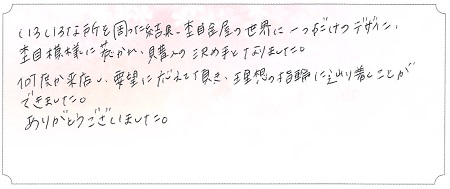 いろいろな所を周った結果、杢目金屋の世界に一つだけのデザイン、
杢目模様に惹かれ、購入の決め手となりました。
何度か来店し、要望に応えて頂き、理想の指輪に辿り着くことが
できました。
ありがとうございました。